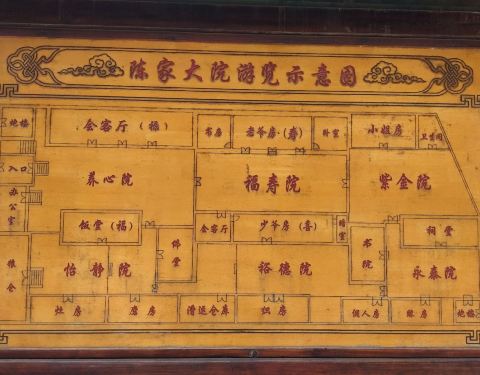 陈家大院游览示意图
炮楼
会客厅（禄）
书房
老爷房（寿）
卧室
小姐房
卫生间
入口
养心院
福寿院
紫金院
办公室
饭堂（福）
佛堂
会客厅
少爷房（喜）
书院
祠堂
粮仓
怡静院
裕德院
永泰院
灶房
磨房
漕运仓库
织房
佣人房
账房
炮楼